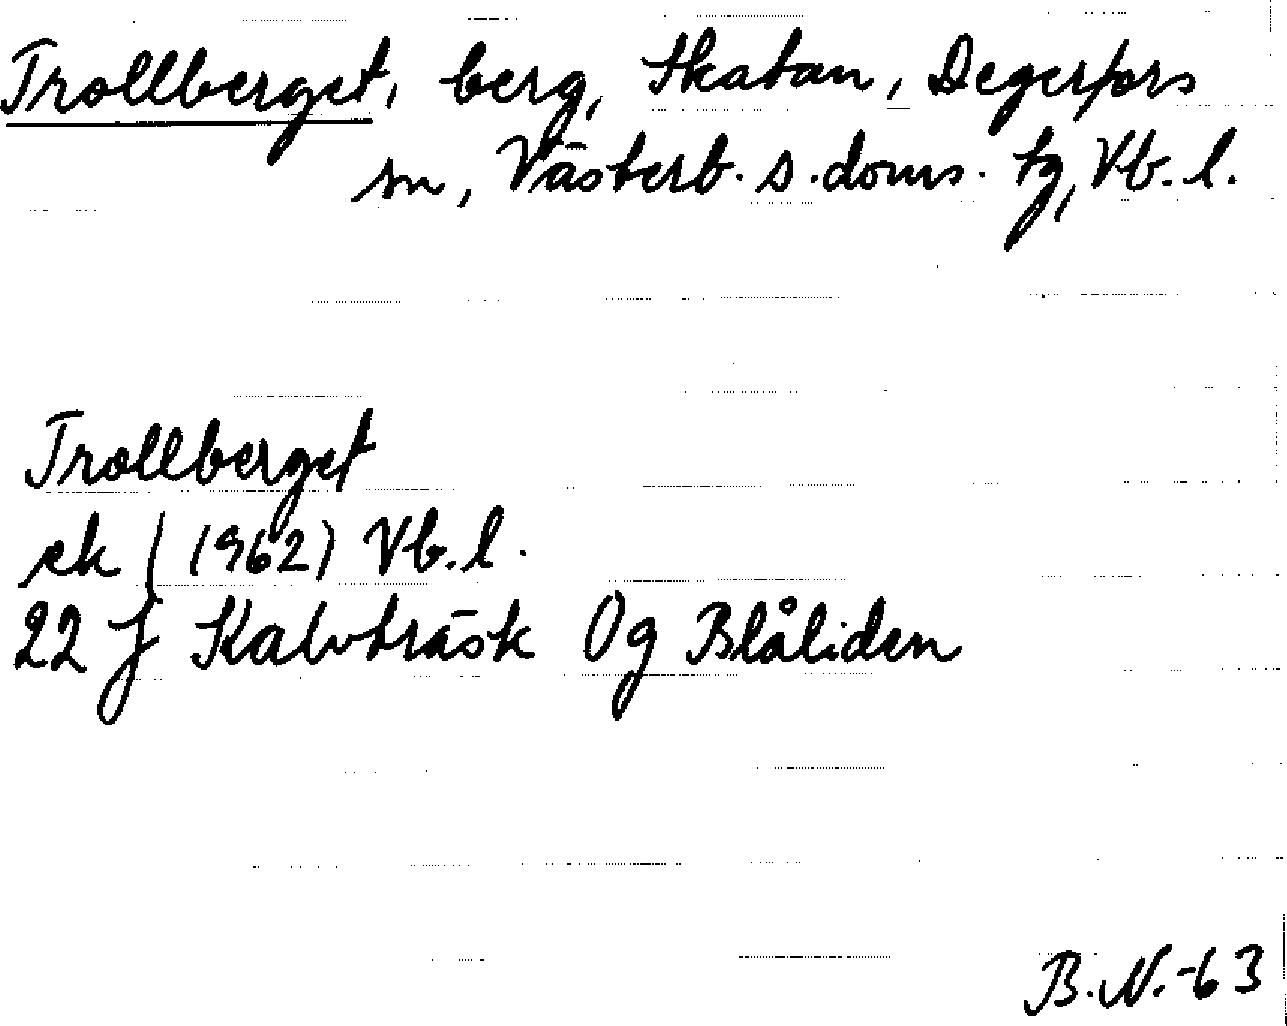 Trollberget, berg, Skatan, Degerfors
sn, Västerb. s. doms. tg, Vb. l.
Trollberget
ek (1962) Vb. l.
22 J Kalvträsk Og Blåliden
B.N.-63